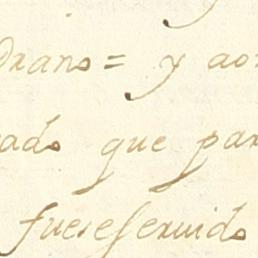 Drans = y ao
ado que par
fuese seruido